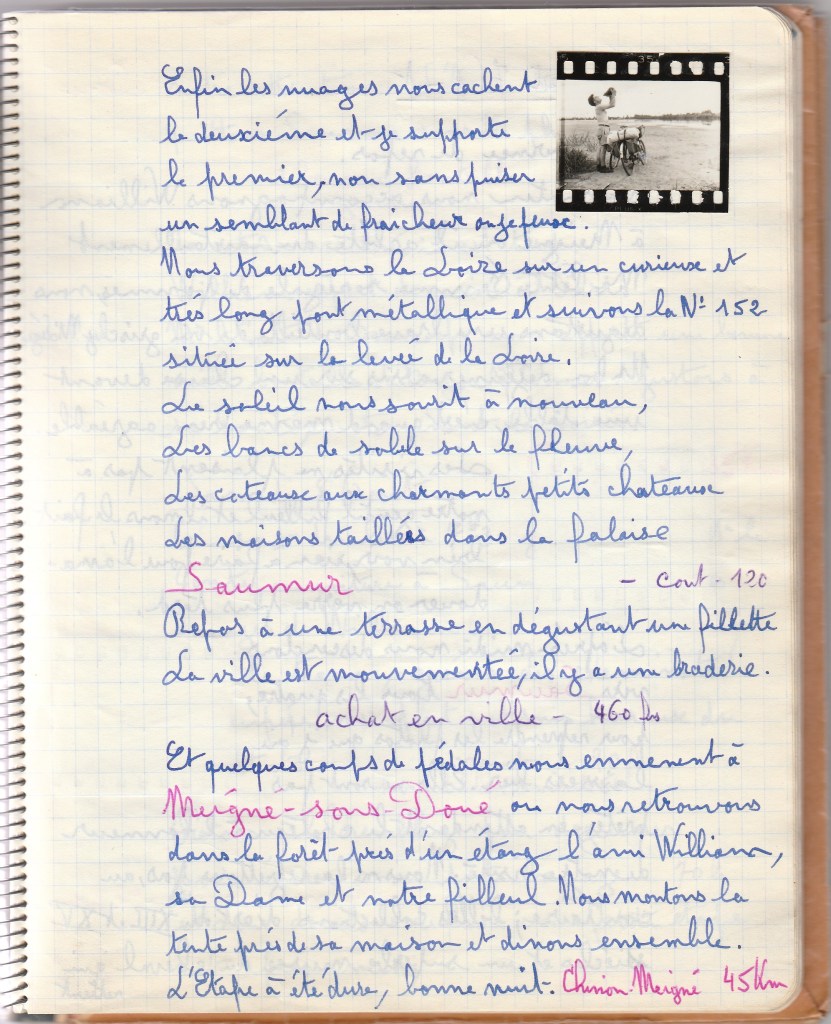 Enfin les nuages nous cachent
le deuxième et je supporte
le premier, non sans puiser
un semblant de fraicheur
Nous traversons la Loire sur un curieux et
très long pont métallique et suivons la N° 152
située sur la levée de la Loire.
Le soleil nous sourit à nouveau,
Les bancs de sable sur le fleuve,
Les coteaux aux charmants petits chateaux
Les maisons taillées dans la falaise
Saumur - cout - 120
Repos à une terrasse en dégustant une fillette
La ville est mouvementée, il y a une braderie.
achat en ville - 460 frs
Et quelques coups de pédales nous emmenent à
Meigné-sous-Doué ou nous retrouvons
dans la forêt près d'un étang l'ami William,
sa Dame et notre filleul. Nous montons la
tente près de sa maison et dinons ensemble.
L'Etape à été dure, bonne nuit. Chinon-Meigné 45 Km